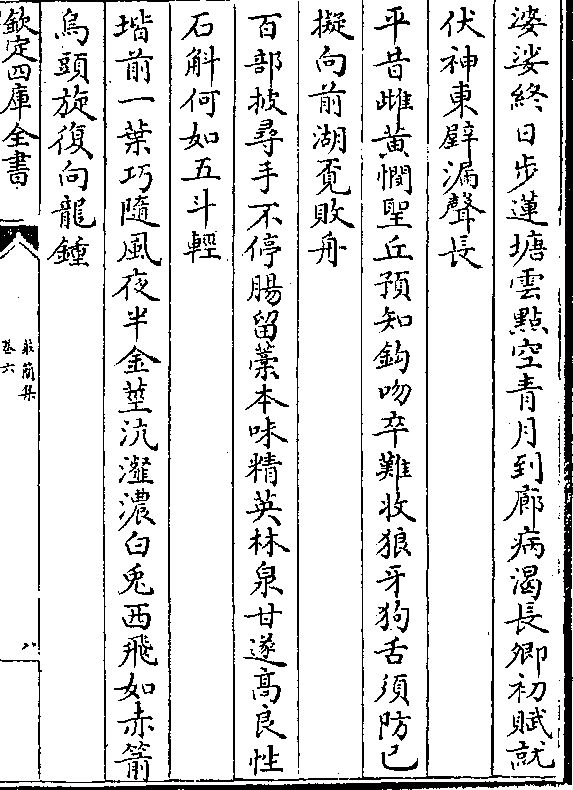 婆娑終日步蓮塘雲㸃空青月到廊病渴長卿初賦就
伏神東壁漏聲長
平昔雌黄憫聖丘預知鈎吻卒難收狼牙狗舌須防已
擬向前湖覔敗舟
百部披尋手不停腸留藁本味精英林泉甘遂髙良性
石斛何如五斗輕
堦前一葉巧隨風夜半金莖沆瀣濃白兎西飛如赤箭
烏頭旋復向龍鍾
欽定四庫全書
莊簡集
卷六
八